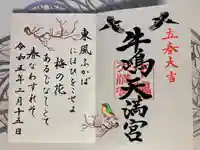 立春大吉
牛嶋天満宮
東風ふかば
にほひをこせよ
梅の花
あるじなしとて
春なわすれそ
令和五年二月十三日